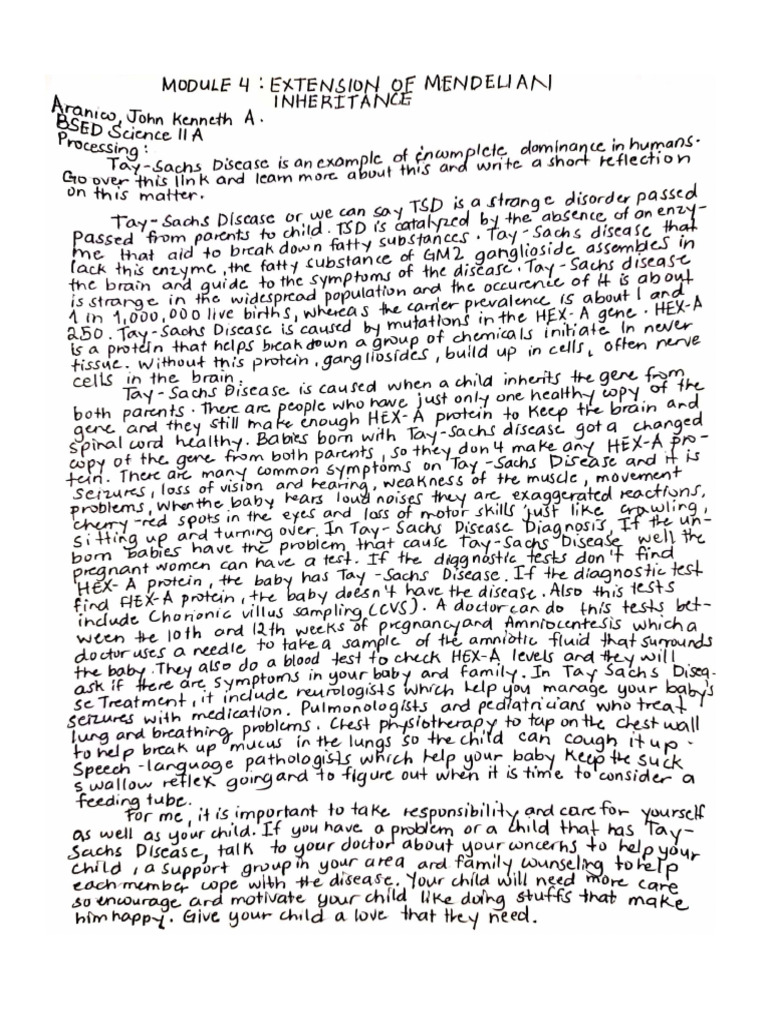 MODULE 4 : EXTENSION OF MENDELIAN
INHERITANCE
Aranico, John Kenneth A.
BSED Science II A
Processing :
Tay-Sachs Disease is an example of incomplete dominance in humans.
Go over this link and learn more about this and write a short reflection
on this matter.
Tay-Sachs Disease or we can say TSD is a strange disorder passed
Passed from parents to child. TSD is catalyzed by the absence of an enzy-
me that aid to break down fatty substances. Tay-Sachs disease that
lack this enzyme, the fatty substance of GM2 ganglioside assembles in
the brain and guide to the symptoms of the disease. Tay-Sachs disease
is strange in the widespread population and the occurence of it is about
1 in 1,000,000 live births, whereas the carrier prevalence is about 1 and
250. Tay-Sachs Disease is caused by mutations in the HEX-A gene. HEX-A
is a protein that helps break down a group of chemicals initiate in never
tissue. Without this protein, gangliosides, build up in cells, often nerve
cells in the brain.
Tay-Sachs Disease is caused when a child inherits the gene from
both parents. There are people who have just only one healthy copy of the
gene and they still make enough HEX-A protein to keep the brain and
spinal cord healthy. Babies born with Tay-Sachs disease got a changed
copy of the gene from both parents, so they don't make any HEX-A pro-
tein. There are many common symptoms on Tay-Sachs Disease and it is
seizures, loss of vision and hearing, weakness of the muscle, movement
problems, when the baby hears loud noises they are exaggerated reactions,
cherry-red spots in the eyes and loss of motor skills just like crawling,
sitting up and turning over. In Tay-Sachs Disease Diagnosis, If the un-
born babies have the problem that cause Tay-Sachs Disease well the
pregnant women can have a test. If the diagnostic tests don't find
HEX-A protein, the baby has Tay-Sachs Disease. If the diagnostic test
find HEX-A protein, the baby doesn't have the disease. Also this tests
include Chorionic villus sampling (CVS). A doctor can do this tests bet-
ween the 10th and 12th weeks of pregnancy and Amniocentesis which a
doctor uses a needle to take a sample of the amniotic fluid that surrounds
the baby. They also do a blood test to check HEX-A levels and they will
ask if there are symptoms in your baby and family. In Tay Sachs Disea-
se Treatment, it include neurologists which help you manage your baby's
seizures with medication. Pulmonologists and pediatricians who treat
lung and breathing problems. Chest physiotherapy to tap on the chest wall
to help break up mucus in the lungs so the child can cough it up.
Speech-language pathologists which help your baby keep the suck
swallow reflex going and to figure out when it is time to consider a
feeding tube.
For me, it is important to take responsibility and care for yourself
as well as your child. If you have a problem or a child that has Tay-
Sachs Disease, talk to your doctor about your concerns to help your
child, a support group in your area and family counseling to help
each member cope with the disease. Your child will need more care
so encourage and motivate your child like doing stuffs that make
him happy. Give your child a love that they need.